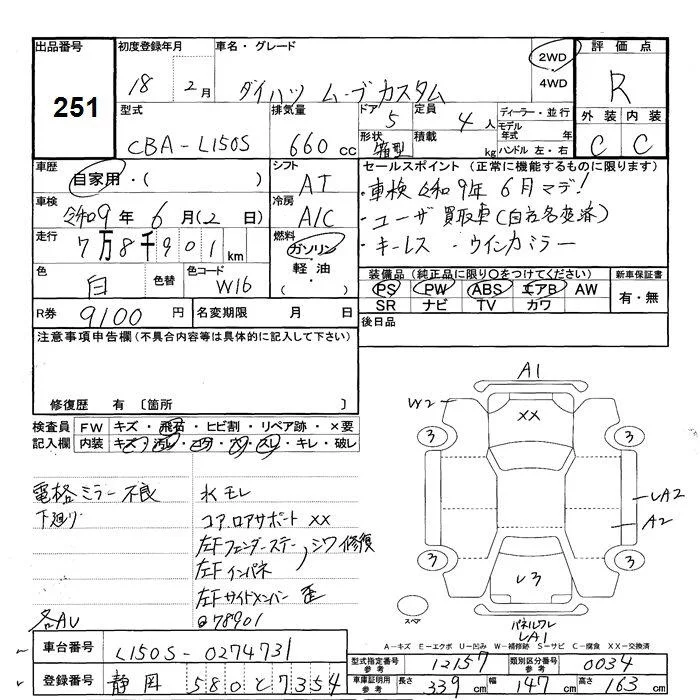 出品番号 初度登録年月 車名・グレード 評価点
251
18年 2月 ダイハツ ムーブカスタム 2WD 4WD R
型式 排気量 ドア 5 定員 4人 ディーラー・並行 外装 内装
CBA-L150S 660cc 形状 箱型 積載 kg モデル年式 年 ハンドル 左・右 C C
車歴 シフト セールスポイント(正常に機能するものに限ります)
自家用・( ) AT ・車検 令和9年6月マデ!
車検 冷房
令和9年 6月(2日) A/C ・ユーザ買取車(自社名変済)
走行 燃料
7万8千901km ガソリン 軽油 ( ・ ) ・キーレス ・ウインカミラー
色 色替 色コード 装備品(純正品に限り○をつけてください) 新車保証書
白 W16 PS PW ABS エアB AW 有・無
SR ナビ TV カワ
R券 9100円 名変期限 月 日 後日品
注意事項申告欄(不具合内容等は具体的に記入して下さい)
修復歴 有 〔箇所 〕
検査員 FW キズ・飛石・ヒビ割・リペア跡・×要
記入欄 内装 キズ・汚レ・コゲ・穴・スレ・キレ・破レ
電格ミラー不良 水モレ
下廻リ コア.ロアサポート XX
左Fフェンダーステー シワ修復
左Fインパネ
左Fサイドメンバー 歪
各AU 78901
A1
W2 XX
3 3
LA2
A2
3 3
L3
スペア
パネルワレ
LA1
A-キズ E-エクボ U-凹み W-補修跡 S-サビ C-腐食 XX-交換済
車台番号 L150S-0274731
型式指定番号 参考 12157 類別区分番号 参考 0034
登録番号 静岡 580 と 7354
車庫証明用 参考 長さ 339cm 幅 147cm 高さ 163cm